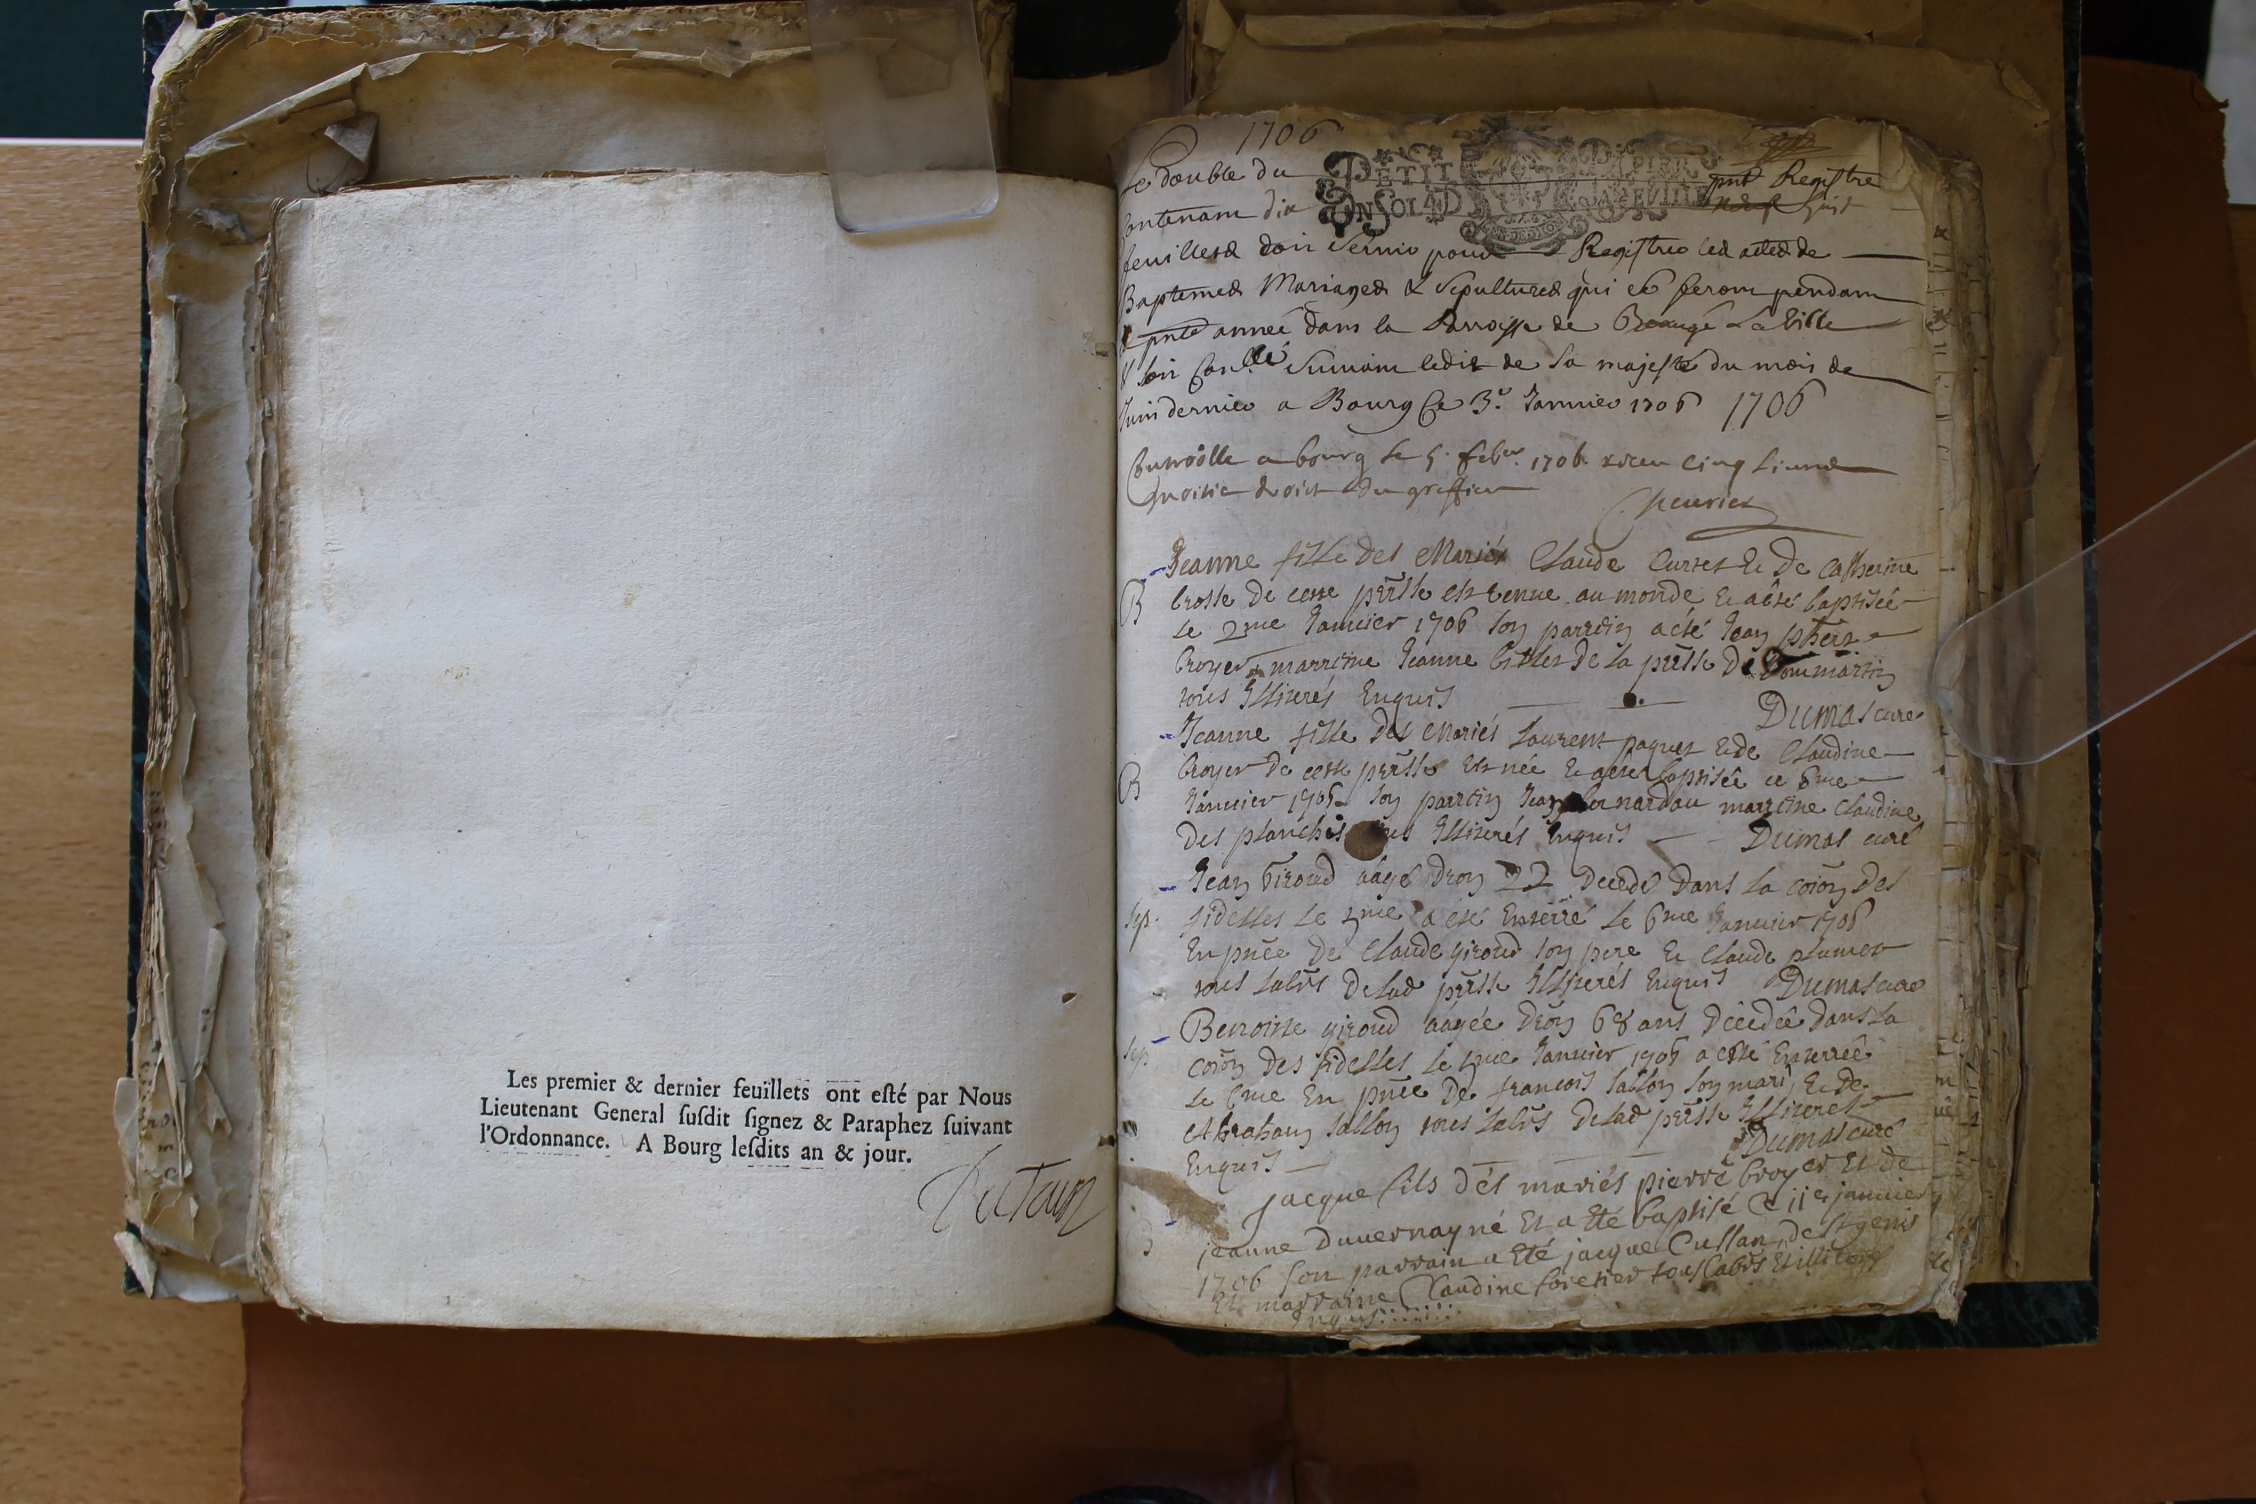 Les premier & dernier feuïllets ont esté par Nous
Lieutenant General susdit signez & Paraphez suivant
l'Ordonnance. A Bourg lesdits an & jour.
1706
Le double du PETIT PAPIER pnt Registre
Contenant dix UN SOL
feuillets doit servir pour Registre les actes de
Baptemes Mariages & Sepultures qui se feront pendant
pnte année dans la Parroisse de Beaugé La Ville
& soit Conllé suivant ledit de sa majesté du mois de
Juin dernier a Bourg Ce 3e Janvier 1706 1706
Controlle a bourg le 5 febvr 1706 receu cinq livres
droict du greffier
Jeanne fille des Mariés Claude Curtet & De Catherine
B brosse De cette prsse est venue au monde & a été baptisée
le 2me Janvier 1706 son parrein a été Jean
broyer marreine Jeanne De la prsse De Dommartin
tous Illiterés Enquis
Dumas curé
Jeanne fille Des Mariés Laurent paquet & de Claudine
B broyer De cette prsse Est née & a été baptisée ce 6me
Janvier 1706 son parrein Jean bernardau marreine Claudine
Des planches tous Illiterés Enquis Dumas curé
Jean Giroud aâgé Dron 22 Decedé Dans la coïon Des
Sep. fidelles le 5me a été Enterré le 6me Janvier 1706
En pnce De Claude giroud son pere & Claude plumet
tous labrs Delad prsse Illiterés Enquis Dumas curé
Benoiste giroud aâgée Dron 68 ans Décedée Dans la
Sep. coïon Des fidelles le 5me Janvier 1706 a esté Enterrée
le 6me En pnce De francois sallon son mari & de
Abraham sallon tous labrs Delad prsse Illiterés
Enquis Dumas curé
jacque fils dés mariés pierre broyer Et de
jeanne Duvernay né Et a Eté baptisé Ce 11e janvier
1706 son parrain a Eté jacque Cullan de St genis
Et marraine Claudine foretier tous labrs Et illiterés
Enquis